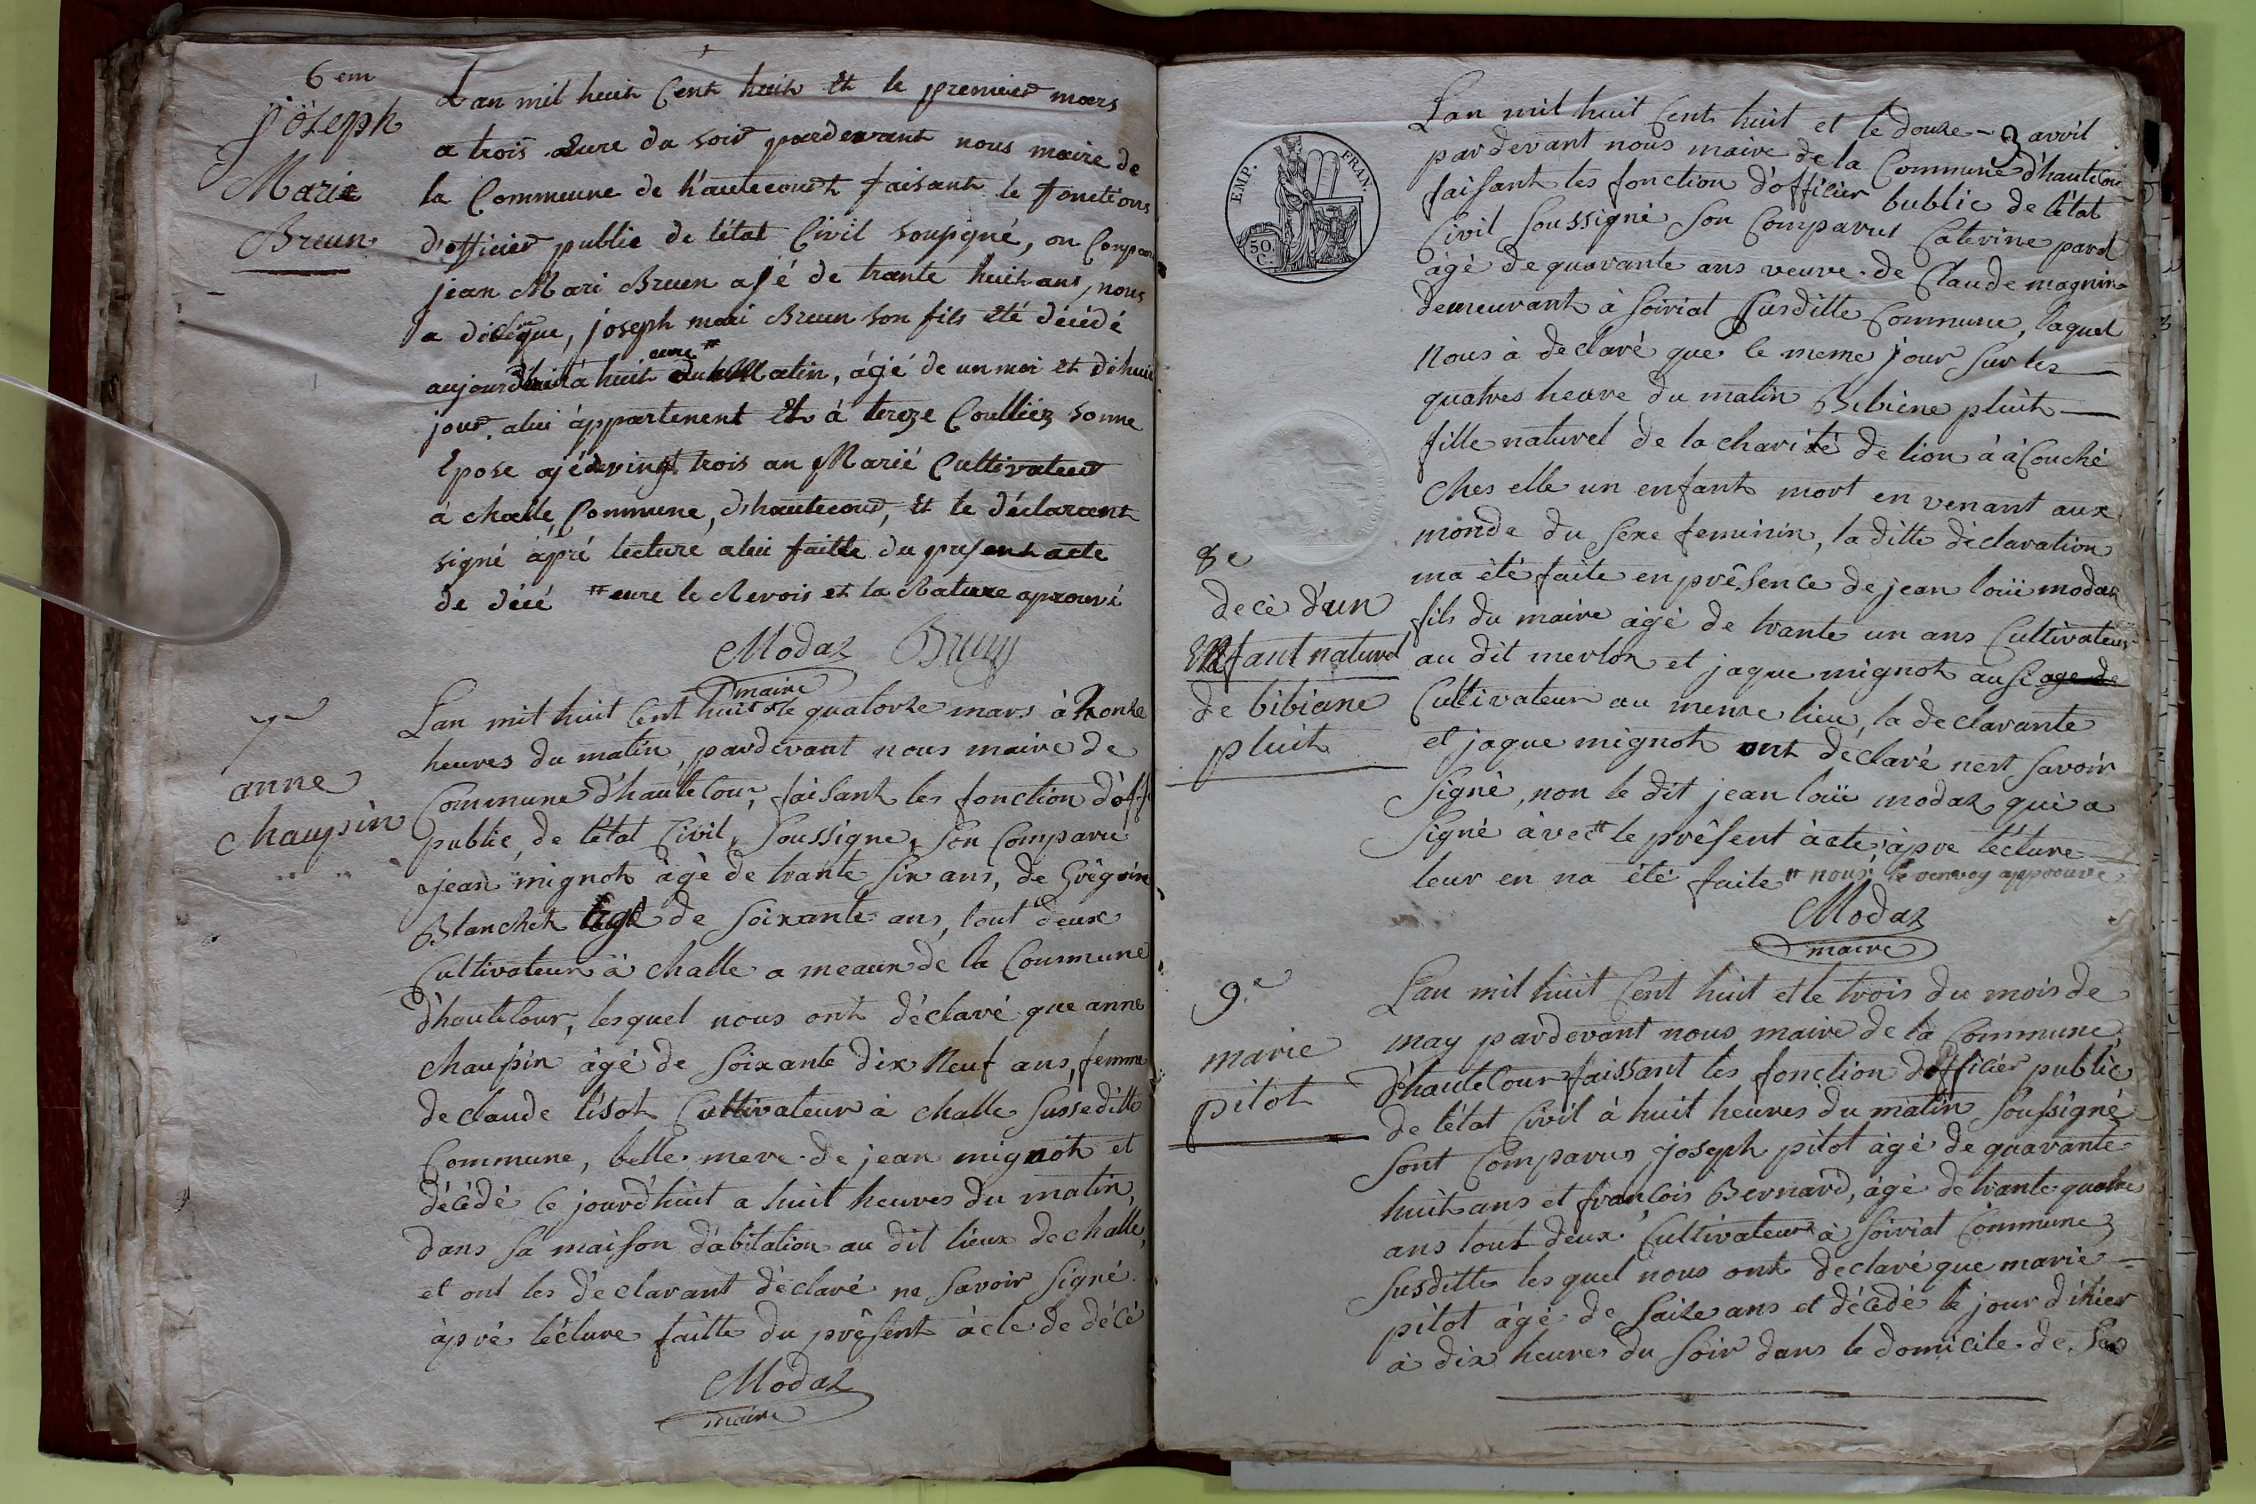 6em
joseph
Marie
Breun
Lan mil huit Cent huit Et le premier mars
a trois Eure du soir pardevant nous maire de
la Commeune de hautecourt faisant le fonctions
d'officier public de létat Civil soupigné, on Compar
jean Mari Breun ajé de trante huit ans, nous
a déclque, joseph mari Breun son fils été décédé
aujourdhui à huit du Matin, ágé de un moi et dihui
eure #
jour. alui áppartenent Et á tereze Coullier sonne
Epose ajé devingt trois an Marié Cultivateur
á challe Commune, dhautecour, Et le déclarant
signé ápré lecture alui faitte du present acte
de décé # eure le Renvois et la Rature aprouvé
Modas Bruny
maire
7e
anne
chaupin
Lan mil huit Cent huit & le quatorze mars à honze
heures du matin, pardevant nous maire de
Commune d'hautecour, faisant les fonction d'offi
public, de létat Civil, Soussigne, Son Comparu
jean mignot àgè de trante Six ans, de Grêgoire
Blanchet agé de Soixante ans, tout deux
Cultivateur à challe a meaux de la Commune
d'hautecour, lesquel nous ont déclaré que anne
chaupin àgé de Soixante dix Neuf ans, femme
de claude tisot Cultivateur à challe Susseditte
Commune, belle mere de jean mignot et
dècèdé Ce jourd'huit a huit heures du matin,
dans Sa maison dabitation au dit lieux de challe,
et ont les déclarant déclaré ne Savoir Signé
àpré lécture faitte du prêsent àcte de décé
Modas
maire
EMP. FRAN.
50. C.
8e
decè d'un
Enfant naturel
de bibiane
pluit
Lan mil huit Cent huit et le douze - avril
3
pardevant nous maire de la Commune d'hautecour
faisant les fonction d'officier bublic de létat
Civil Soussigné Son Comparut Caterine parot
àgé de quarante ans veuve de Claude magnin
demeurant à Soiriat Susditte Commune, laquel
Nous à declaré que le meme jour Sur les
quatres heure du matin Bibiene pluit
fille naturel de la charité de lion à àCouché
Ches elle un enfant mort en venant aux
monde du Sexe feminin, la ditte déclaration
ma été faite en prêsence de jean loüi modas
fils du maire àgé de trante un ans Cultivateur
au dit merlon et jaque mignot ausi age de
Cultivateur au meme lieu, la declarante
et jaque mignot ont déclaré nent Savoir
Signé, non le dit jean loüi modas qui a
Signé àvec # le prêsent àcte àpre lécture
leur en na été faite # nous, le renvoy approuvé
Modas
maire
9e
marie
pitot
Lan mil huit Cent huit et le trois du mois de
may pardevant nous maire de la Commune
d'hautecour faissant les fonction d'officier public
de létat Civil à huit heures du matin Soussigné
Sont Comparus joseph pitot àgé de quarante
huit ans et francois Bernard, àgé de trante quatre
ans tout deux Cultivateur à Soiriat Commune
Susditte les quel nous ont declaré que marie
pitot àgé de Saize ans et décédé le jour dihier
à dix heures du Soir dans le domicile de Ses